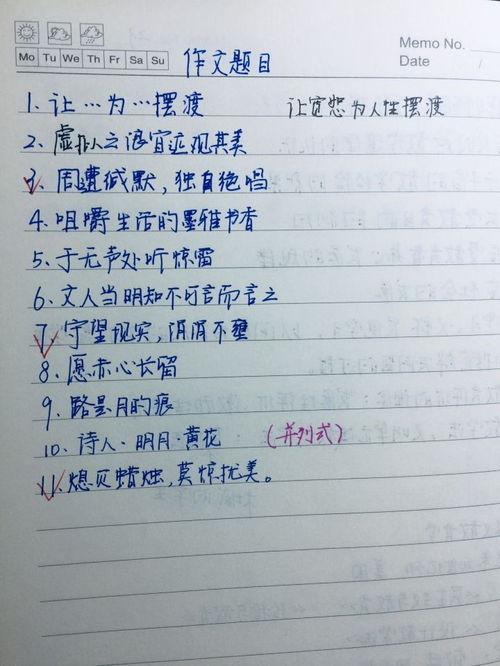 Memo No.
Mo Tu We Th Fr Sa Su
Date /
作文题目
1. 让…为…摆渡 让宽恕为人性摆渡
2. 虚拟之浪宜近观其美
3. 周遭缄默,独自绝唱
4. 咀嚼生活的墨雅书香
5. 于无声处听惊雷
6. 文人当明知不可言而言之
7. 守望现实,涓涓不壅
8. 愿赤心长留
9. 路是月的痕
10. 诗人·明月·黄花 (并列式)
11. 熄灭蜡烛,莫惊扰美。